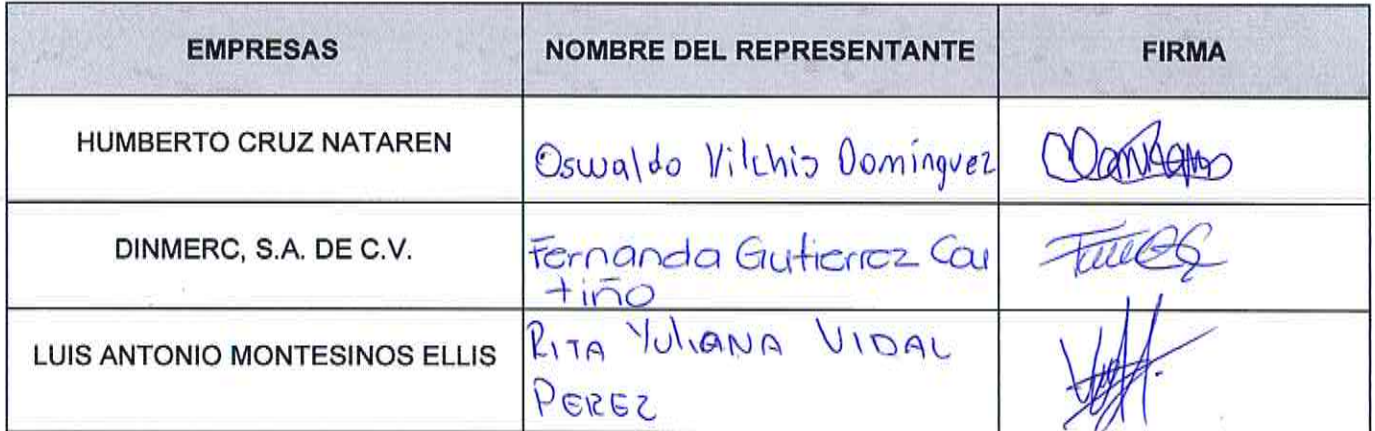 EMPRESAS NOMBRE DEL REPRESENTANTE FIRMA
HUMBERTO CRUZ NATAREN Oswaldo Vilchis Domínguez
DINMERC, S.A. DE C.V. Fernanda Gutierrez Cau
tiño
LUIS ANTONIO MONTESINOS ELLIS RITA YULIANA VIDAL
PEREZ